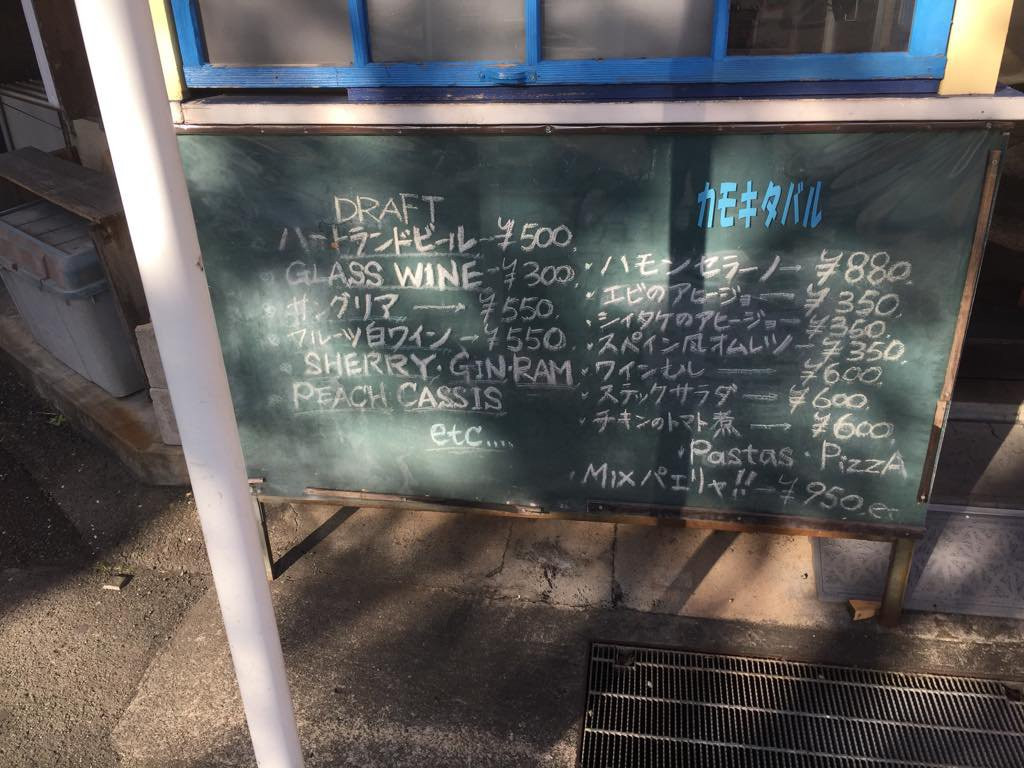 DRAFT
ハートランドビール-¥500.
GLASS WINE-¥300.
サングリア → ¥550.
フルーツ白ワイン → ¥550.
SHERRY・GIN・RAM
PEACH CASSIS
etc....
カモキタバル
・ハモンセラーノ→ ¥880.
・エビのアヒージョ→ ¥350.
・シイタケのアヒージョ→ ¥360.
・スペイン風オムレツ→ ¥350.
・ワインむし → ¥600.
・スティックサラダ → ¥600.
・チキンのトマト煮 → ¥600.
・Pastas・PizzA
・Mixパエリャ!!-¥950.